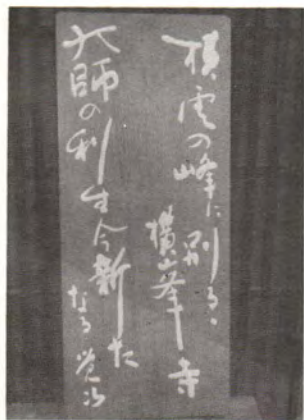 横雲の峰に別るゝ
横峯寺
大師の利生今新た
なる 覚